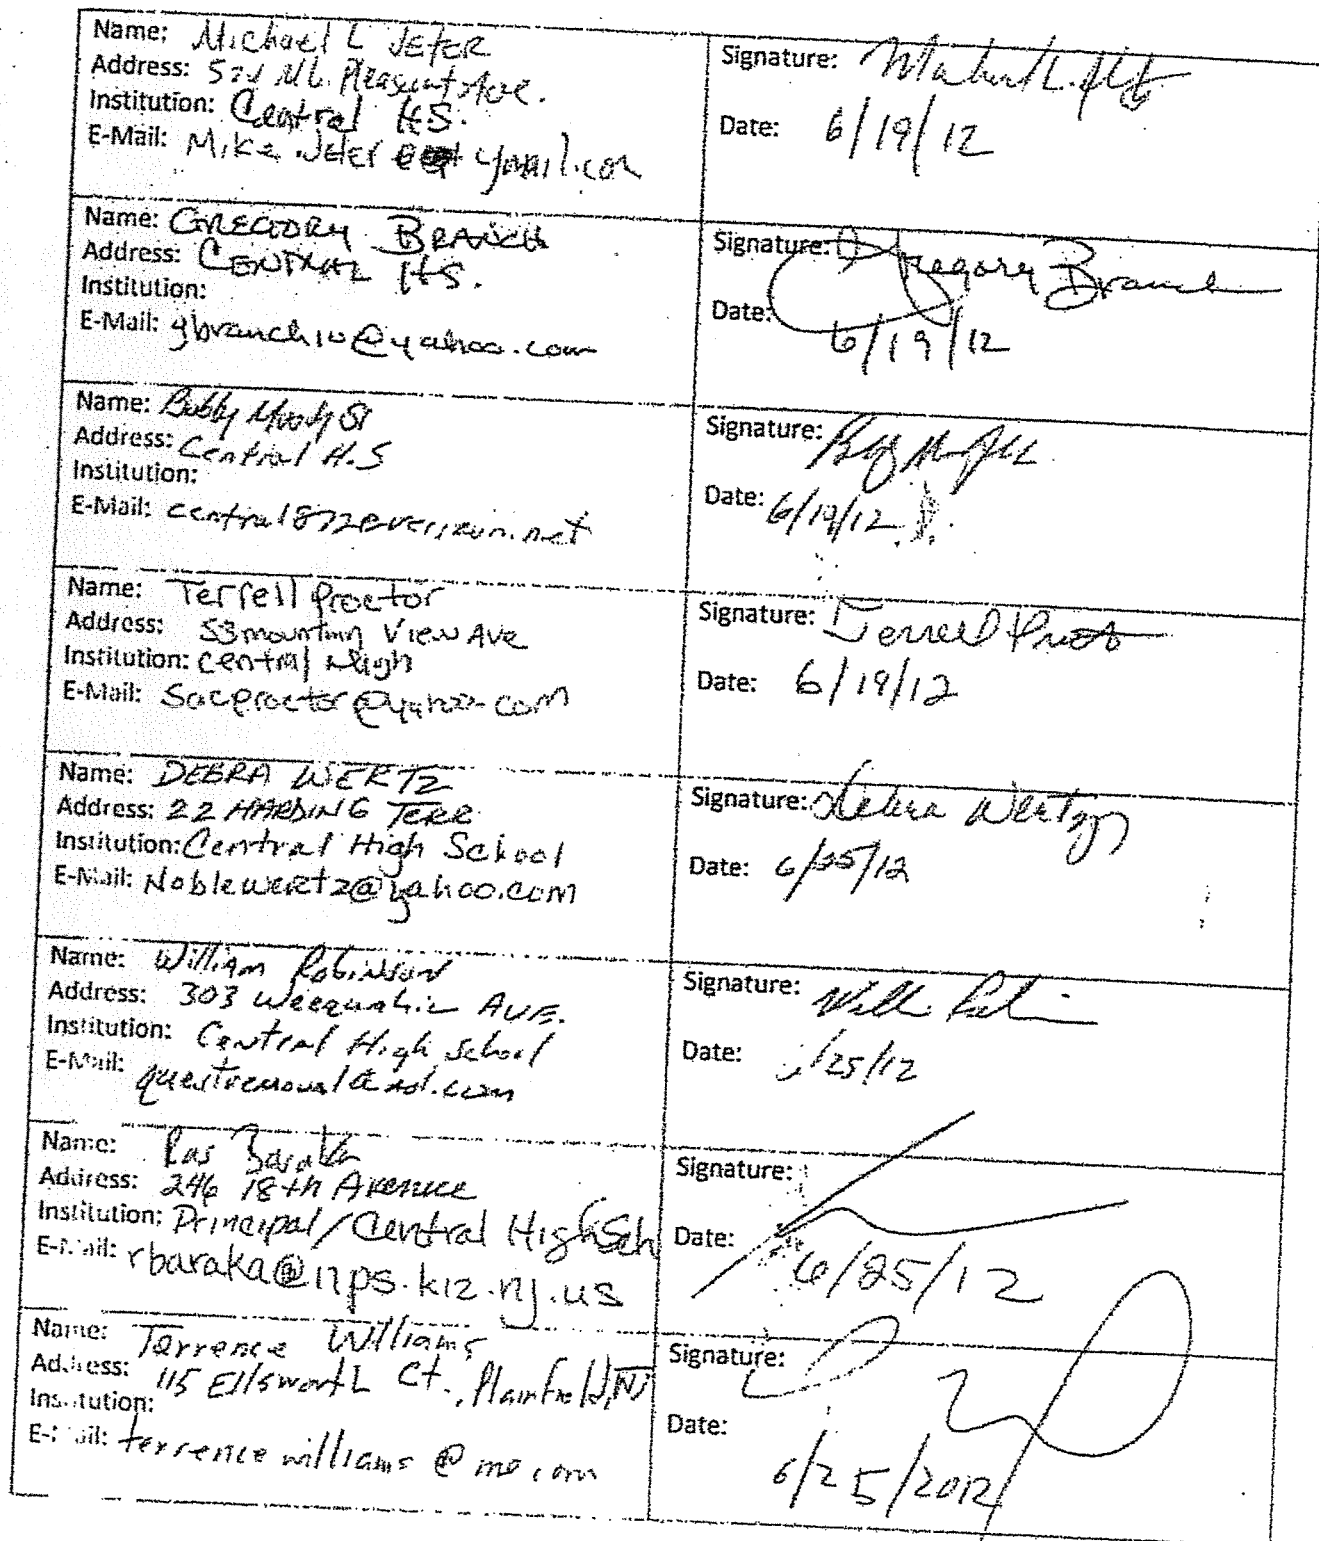 Name: Michael L Jeter
Address: Mt. Pleasant Ave.
Institution: Central H.S.
E-Mail: Mike.Jeter
Signature:
Date: 6/19/12
Name: GREGORY BRANCH
Address: CENTRAL H.S.
Institution:
E-Mail: gbranch10@yahoo.com
Signature: Gregory Branch
Date: 6/19/12
Name: Bobby Moody Sr
Address: Central H.S
Institution:
E-Mail: central872@verizon.net
Signature:
Date: 6/19/12
Name: Terrell Proctor
Address: 53 mountain View Ave
Institution: Central High
E-Mail: Sacproctor@yahoo.com
Signature: Terrell
Date: 6/19/12
Name: DEBRA WERTZ
Address: 22 HARDING TERR
Institution: Central High School
E-Mail: Noblewertz@yahoo.com
Signature: Debra Wertz
Date: 6/25/12
Name: William Robinson
Address: 303 Weequahic AVE.
Institution: Central High School
E-Mail:
Signature:
Date: /25/12
Name: Ras Baraka
Address: 246 18th Avenue
Institution: Principal/Central High Sch
E-Mail: rbaraka@nps.k12.nj.us
Signature:
Date: 6/25/12
Name: Terrence Williams
Address: 115 Ellsworth Ct., Plainfield, NJ
Institution:
E-Mail: terrence williams@me.com
Signature:
Date: 6/25/2012